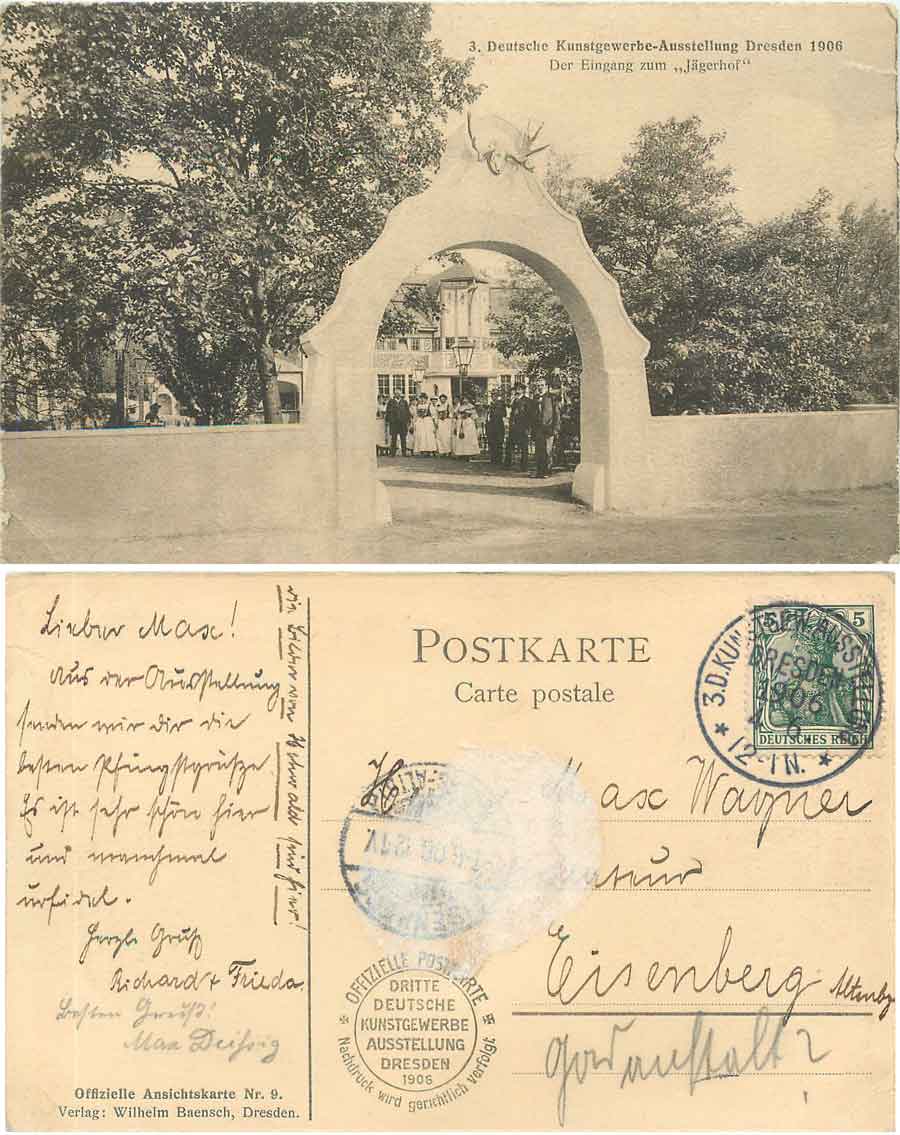 3. Deutsche Kunstgewerbe-Ausstellung Dresden 1906
Der Eingang zum „Jägerhof“
Lieber Max!
Aus der Ausstellung
senden wir dir die
besten Pfingstgrüße
Es ist sehr schön hier
und manchmal
urfidel.
Herzl. Gruß
Richard + Frieda.
Besten Gruß!
Max
die Bilder von sind hier!
Offizielle Ansichtskarte Nr. 9.
Verlag: Wilhelm Baensch, Dresden.
POSTKARTE
Carte postale
5 5
DEUTSCHES REICH
* 3.D.KUNSTGEW.AUSSTELLUNG *
DRESDEN
1906
6
12-1N.
Max Wagner
Eisenberg Altenbg
OFFIZIELLE POSTKARTE
DRITTE
DEUTSCHE
KUNSTGEWERBE
AUSSTELLUNG
DRESDEN
1906
Nachdruck wird gerichtlich verfolgt